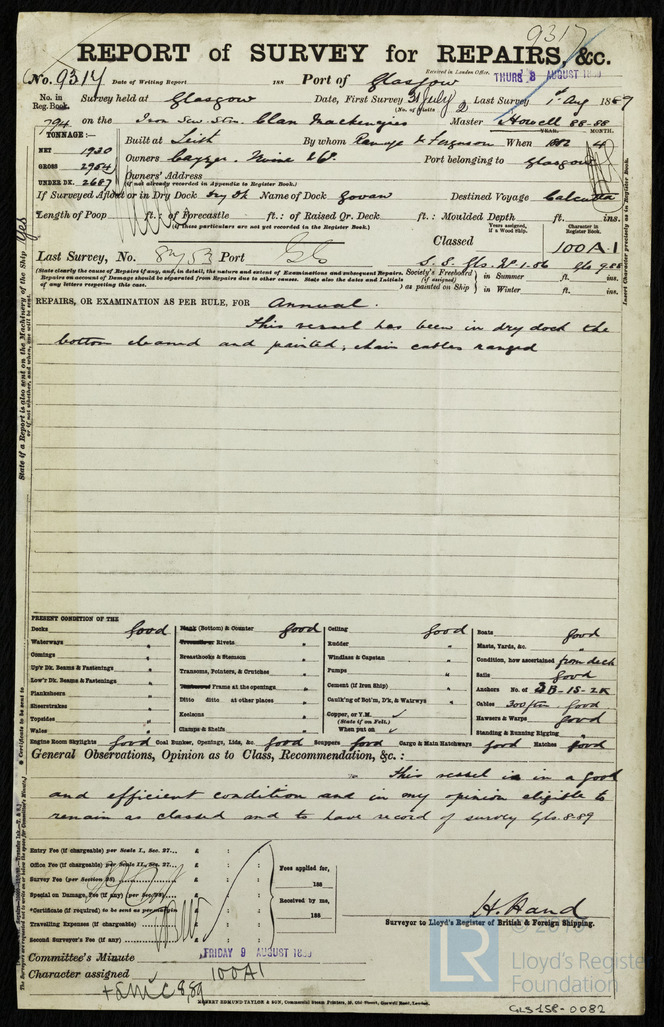 9317
REPORT of SURVEY for REPAIRS, &c.
Received in London Office. THURS 8 AUGUST 18
No. 9317 Date of Writing Report 188 Port of Glasgow
No. in Reg. Book. Survey held at Glasgow Date, First Survey 31 July Last Survey 1st Aug 1889
(No. of Visits 2
794 on the Iron Scw. Str. Clan Mackenzie Master Howell 88-88
TONNAGE:— YEAR. MONTH.
NET 1930 Built at Leith By whom Ramage & Ferguson When 1882 4
GROSS 2954 Owners Cayzer, Irvine & Co. Port belonging to Glasgow
UNDER DK. 2687 Owners' Address
(if not already recorded in Appendix to Register Book.)
If Surveyed Afloat or in Dry Dock Dry Dk Name of Dock Govan Destined Voyage Calcutta
Length of Poop ft. : of Forecastle ft. : of Raised Qr. Deck ft. : Moulded Depth ft. ins.
(if these particulars are not yet recorded in the Register Book.)
Years assigned, if a Wood Ship. Character in Register Book.
Last Survey, No. 8753 Port Gls Classed 100A1
S.S. Gls. No.1-86 Gls 9.88
(State clearly the cause of Repairs if any, and, in detail, the nature and extent of Examinations and subsequent Repairs.
Repairs on account of Damage should be separated from Repairs due to other causes. State also the dates and Initials
of any letters respecting this case.)
Society's Freeboard (if assigned) as painted on Ship in Summer ft. ins.
in Winter ft. ins.
REPAIRS, OR EXAMINATION AS PER RULE, FOR Annual.
This vessel has been in dry dock the
bottom cleaned and painted, chain cables ranged
State if a Report is also sent on the Machinery of the Ship Yes
or if not, whether, and when, one will be sent
Insert Character precisely as in Register Book.
PRESENT CONDITION OF THE
Decks Good
Waterways "
Comings "
Up'r Dk. Beams & Fastenings "
Low'r Dk. Beams & Fastenings "
Planksheers "
Sheerstrakes "
Topsides "
Wales "
Plank (Bottom) & Counter Good
Treenails or Rivets "
Breasthooks & Stemson "
Transoms, Pointers, & Crutches "
Timbers of Frame at the openings "
Ditto ditto at other places "
Keelsons "
Clamps & Shelfs "
Ceiling Good
Rudder "
Windlass & Capstan "
Pumps "
Cement (if Iron Ship) "
Caulk'ng of Bot'm, D'k, & Watrwys "
Copper, or Y.M. ✓
(State if on Felt.)
When put on ✓
Boats good
Masts, Yards, &c. "
Condition, how ascertained from deck
Sails good
Anchors No. of 3B-1S-2K
Cables 300 fm. Good
Hawsers & Warps Good
Standing & Running Rigging "
Engine Room Skylights Good Coal Bunker, Openings, Lids, &c. Good Scuppers Good Cargo & Main Hatchways Good Hatches Good
General Observations, Opinion as to Class, Recommendation, &c. :
This vessel is in a good
and efficient condition and in my opinion eligible to
remain as classed and to have record of survey Gls. 8-89
Entry Fee (if chargeable) per Scale I., Sec. 27... £ : :
Office Fee (if chargeable) per Scale II., Sec. 27... £ : :
Survey Fee (per Section 28) £ : :
Special or Damage, Fee (if any) (per Sec. 28) £ : :
*Certificate (if required) to be sent as per margin
Travelling Expenses (if chargeable) £ : :
Second Surveyor's Fee (if any) £ : :
Fees applied for,
188
Received by me,
188
H. Hand
Surveyor to Lloyd's Register of British & Foreign Shipping.
Committee's Minute FRIDAY 9 AUGUST 18
Character assigned 100A1
+LMC 8,89
ROBERT EDMUND TAYLOR & SON, Commercial Steam Printers, 19, Old Street, Goswell Road, London.
LR
Lloyd's Register
Foundation
GLS152-0082